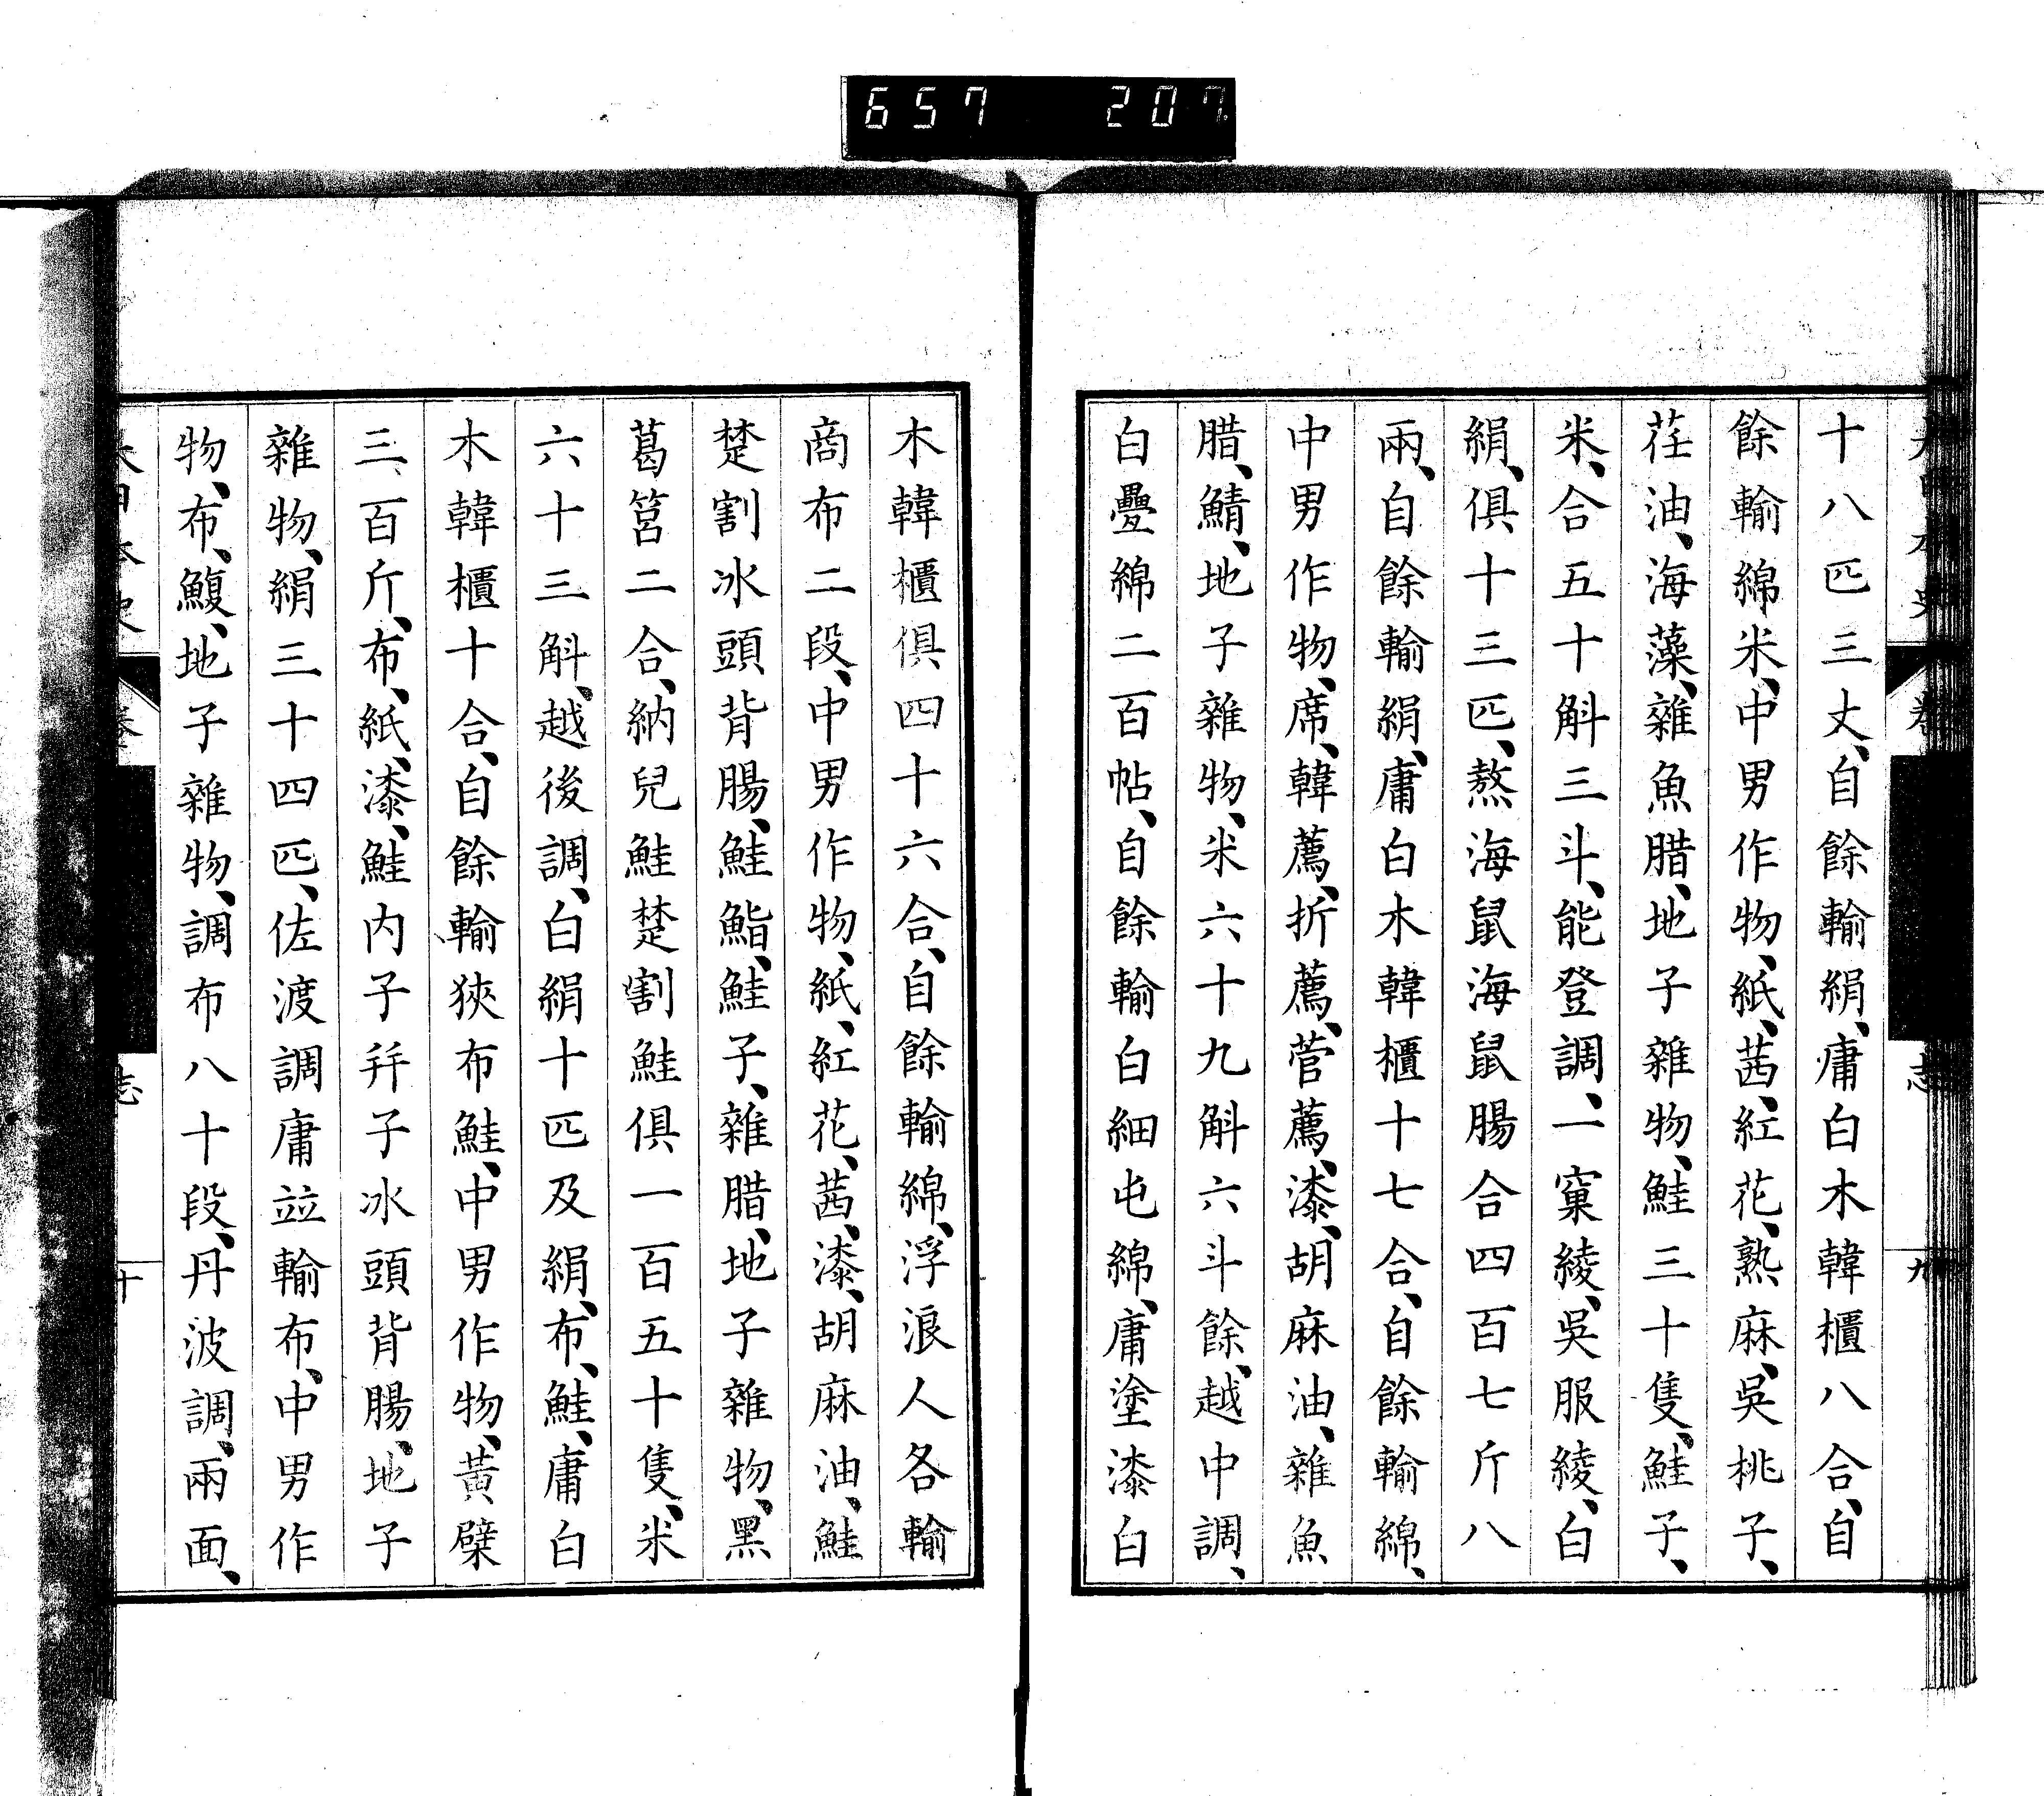 657 207
十八匹三丈、自餘輸絹、庸白木韓櫃八合、自
餘輸綿米、中男作物、紙、茜、紅花、熟麻、吳桃子、
荏油、海藻、雜魚腊、地子雜物、鮭三十隻、鮭子、
米、合五十斛三斗、能登調、一窠綾、吳服綾、白
絹、俱十三匹、熬海鼠海鼠腸合四百七斤八
兩、自餘輸絹、庸白木韓櫃十七合、自餘輸綿、
中男作物、席、韓薦、折薦、菅薦、漆、胡麻油、雜魚
腊、鯖、地子雜物、米六十九斛六斗餘、越中調、
白疊綿二百帖、自餘輸白細屯綿、庸塗漆白
木韓櫃俱四十六合、自餘輸綿、浮浪人各輸
商布二段、中男作物、紙、紅花、茜、漆、胡麻油、鮭
楚割氷頭背腸、鮭鮨、鮭子、雜腊、地子雜物、黑
葛筥二合、納兒鮭楚割鮭俱一百五十隻、米
六十三斛、越後調、白絹十匹及絹、布、鮭、庸白
木韓櫃十合、自餘輸狹布鮭、中男作物、黃檗
三百斤、布、紙、漆、鮭內子幷子氷頭背腸、地子
雜物、絹三十四匹、佐渡調庸竝輸布、中男作
物、布、鰒、地子雜物、調布八十段、丹波調、兩面、
志
十